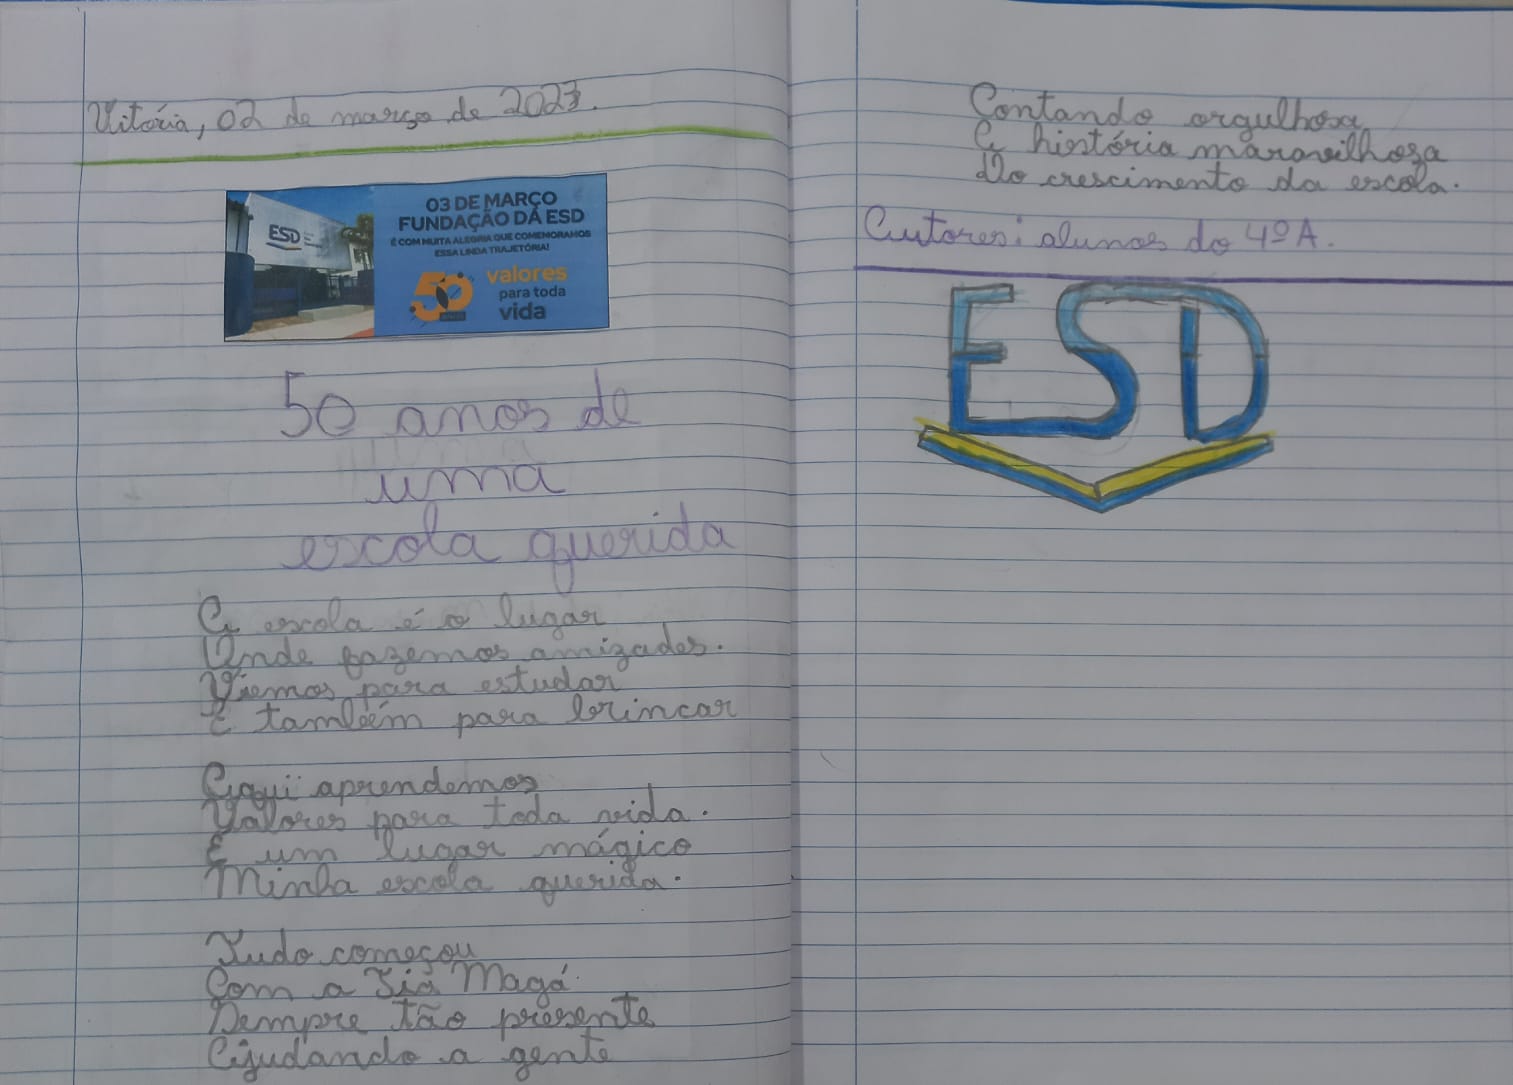 Vitória, 02 de março de 2023.
ESD
03 DE MARÇO
FUNDAÇÃO DA ESD
É COM MUITA ALEGRIA QUE COMEMORAMOS
ESSA LINDA TRAJETÓRIA!
50
valores
para toda
vida
50 anos de
uma
escola querida
A escola é o lugar
Onde fazemos amizades.
Viemos para estudar
E também para brincar
Aqui aprendemos
Valores para toda vida.
É um lugar mágico
Minha escola querida.
Tudo começou
Com a Tia Magá.
Sempre tão presente
Ajudando a gente
Contando orgulhosa
A história maravilhoza
Do crescimento da escola.
Autores: alunos do 4º A.
ESD